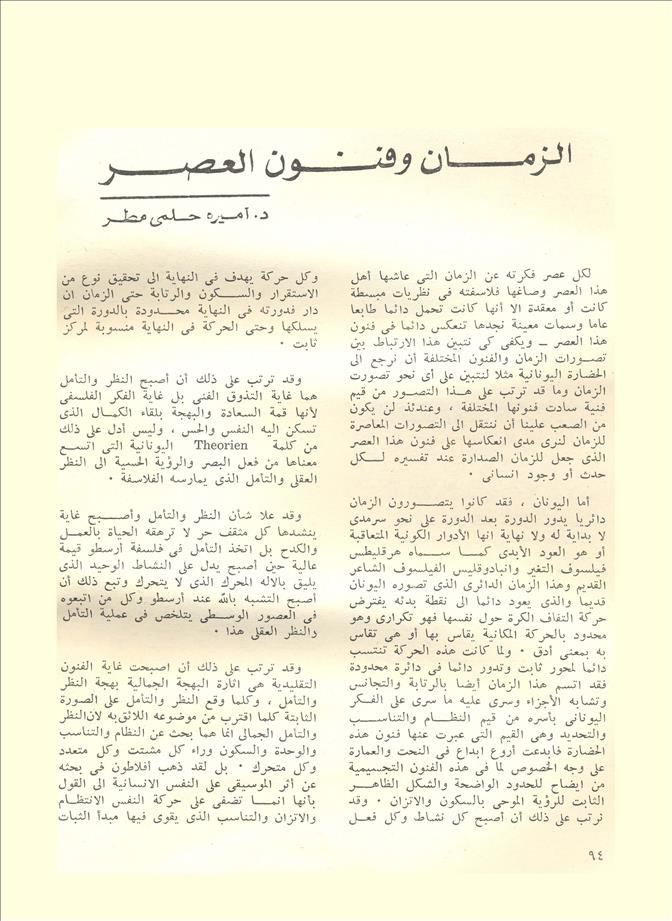 الزمان وفنون العصر
د. أميره حلمى مطر
لكل عصر فكرته عن الزمان التى عاشها أهل
هذا العصر وصاغها فلاسفته فى نظريات مبسطة
كانت أو معقدة الا أنها كانت تحمل دائما طابعا
عاما وسمات معينة نجدها تنعكس دائما فى فنون
هذا العصر ــ ويكفى كى نتبين هذا الارتباط بين
تصورات الزمان والفنون المختلفة أن نرجع الى
الحضارة اليونانية مثلا لنتبين على أى نحو تصورت
الزمان وما قد ترتب على هذا التصور من قيم
فنية سادت فنونها المختلفة ، وعندئذ لن يكون
من الصعب علينا أن ننتقل الى التصورات المعاصرة
للزمان لنرى مدى انعكاسها على فنون هذا العصر
الذى جعل للزمان الصدارة عند تفسيره لكل
حدث أو وجود انسانى .
أما اليونان ، فقد كانوا يتصورون الزمان
دائريا يدور الدورة بعد الدورة على نحو سرمدى
لا بداية له ولا نهاية انها الأدوار الكونية المتعاقبة
أو هو العود الأبدى كما سماه هرقليطس
فيلسوف التغير وانبادوقليس الفيلسوف الشاعر
القديم وهذا الزمان الدائرى الذى تصوره اليونان
قديما والذى يعود دائما الى نقطة بدئه يفترض
حركة التفاف الكرة حول نفسها فهو تكرارى وهو
محدود بالحركة المكانية يقاس بها أو هى تقاس
به بمعنى أدق . ولما كانت هذه الحركة تنتسب
دائما لمحور ثابت وتدور دائما فى دائرة محدودة
فقد اتسم هذا الزمان أيضا بالرتابة والتجانس
وتشابه الأجزاء وسرى عليه ما سرى على الفكر
اليونانى بأسره من قيم النظام والتناسب
والتحديد وهى القيم التى عبرت عنها فنون هذه
الحضارة فابدعت أروع ابداع فى النحت والعمارة
على وجه الخصوص لما فى هذه الفنون التجسيمية
من ايضاح للحدود الواضحة والشكل الظاهر
الثابت للرؤية الموحى بالسكون والاتزان . وقد
ترتب على ذلك أن أصبح كل نشاط وكل فعل
وكل حركة يهدف فى النهاية الى تحقيق نوع من
الاستقرار والسكون والرتابة حتى الزمان ان
دار فدورته فى النهاية محدودة بالدورة التى
يسلكها وحتى الحركة فى النهاية منسوبة لمركز
ثابت .
وقد ترتب على ذلك أن أصبح النظر والتأمل
هما غاية التذوق الفنى بل غاية الفكر الفلسفى
لأنها قمة السعادة والبهجة بلقاء الكمال الذى
تسكن اليه النفس والحس ، وليس أدل على ذلك
من كلمة Theorien اليونانية التى اتسع
معناها من فعل البصر والرؤية الحسية الى النظر
العقلى والتأمل الذى يمارسه الفلاسفة .
وقد علا شأن النظر والتأمل وأصبح غاية
ينشدها كل مثقف حر لا ترهقه الحياة بالعمل
والكدح بل اتخذ التأمل فى فلسفة أرسطو قيمة
عالية حين أصبح يدل على النشاط الوحيد الذى
يليق بالاله المحرك الذى لا يتحرك وتبع ذلك أن
أصبح التشبه بالله عند أرسطو وكل من اتبعوه
فى العصور الوسطى يتلخص فى عملية التأمل
والنظر العقلى هذا .
وقد ترتب على ذلك أن اصبحت غاية الفنون
التقليدية هى اثارة البهجة الجمالية بهجة النظر
والتأمل ، وكلما وقع النظر والتأمل على الصورة
الثابتة كلما اقترب من موضوعه اللائق به لان النظر
والتأمل الجمالى انما هما بحث عن النظام والتناسب
والوحدة والسكون وراء كل مشتت وكل متعدد
وكل متحرك . بل لقد ذهب أفلاطون فى بحثه
عن أثر الموسيقى على النفس الانسانية الى القول
بأنها انما تضفى على حركة النفس الانتظام
والاتزان والتناسب الذى يقوى فيها مبدأ الثبات
٩٤